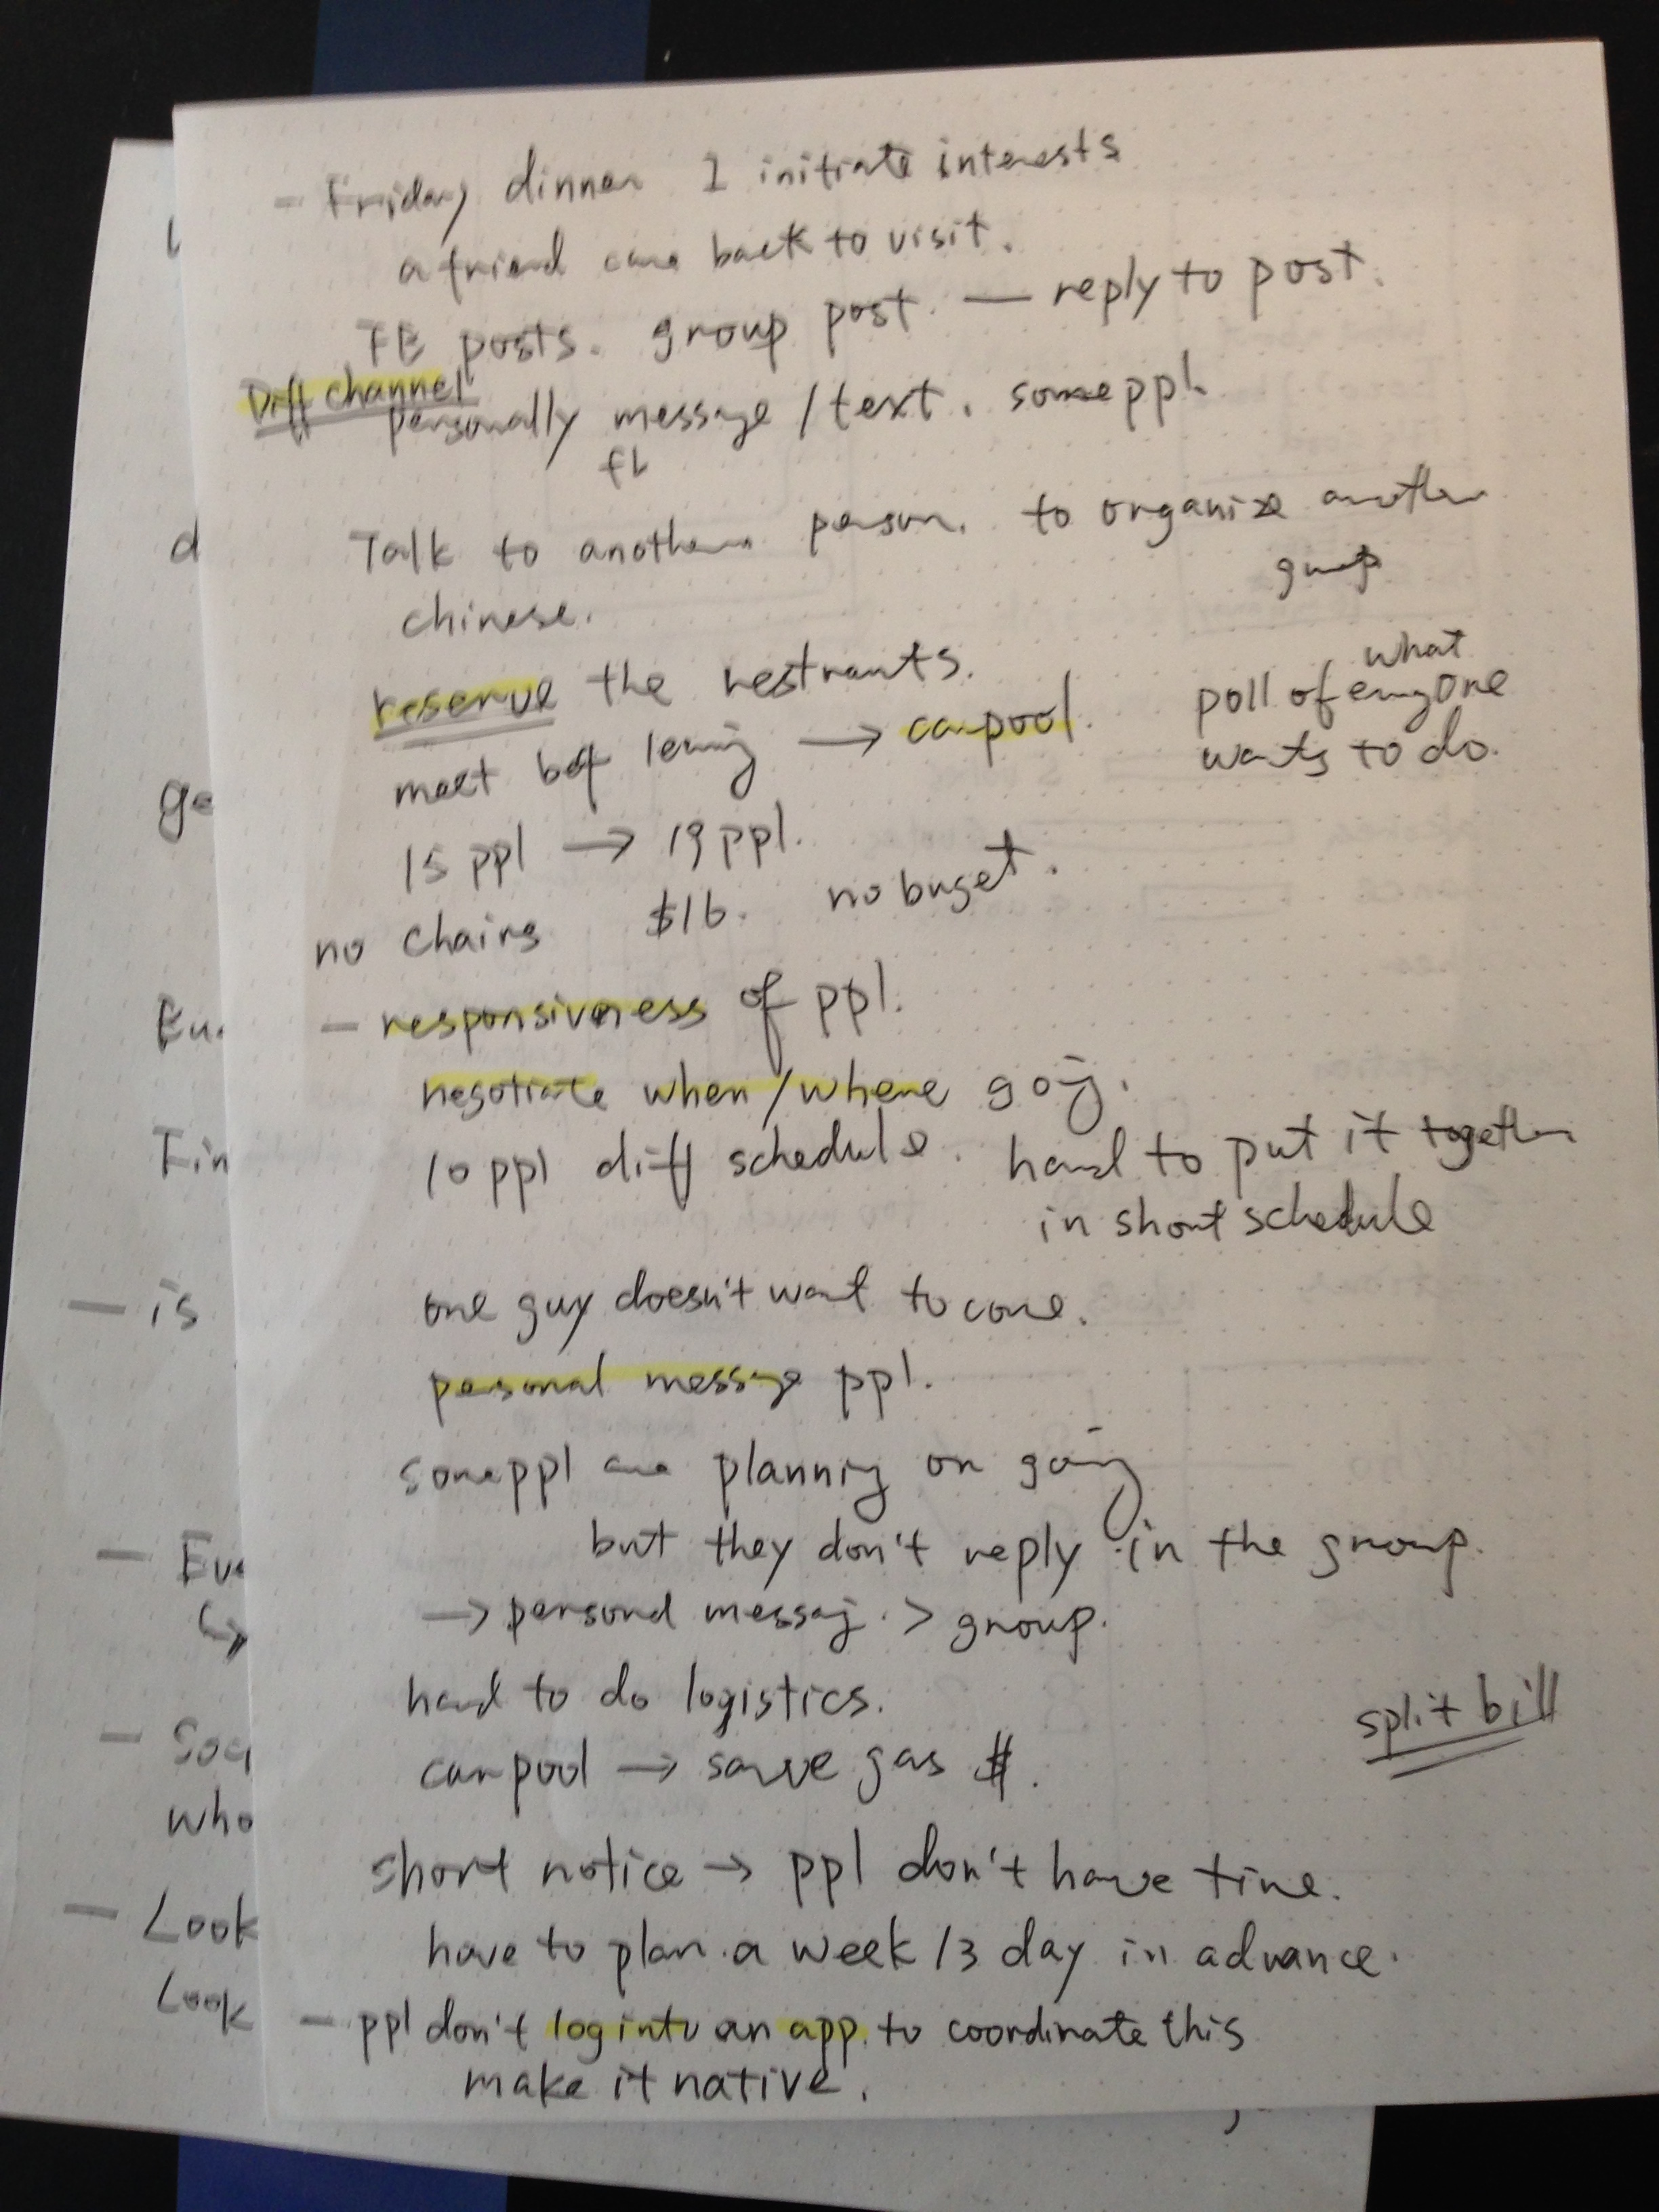 - Friday dinner I initiate interests
a friend came back to visit.
FB posts. group post. — reply to post.
Diff channel
personally message / text. some ppl.
fb
Talk to another person. to organize another
group
chinese.
reserve the restraunts.
what
poll of everyone
meet bef leaving → carpool.
wants to do.
15 ppl → 19 ppl.
no chairs $16. no buget.
- responsiveness of ppl.
negotiate when / where going.
10 ppl diff schedule. hard to put it together
in short schedule
one guy doesn't want to come.
personal message ppl.
some ppl are planning on going
but they don't reply in the group.
→ personal messaging. > group.
hard to do logistics.
split bill
carpool → save gas $.
short notice → ppl don't have time.
have to plan a week / 3 day in advance.
- ppl don't log into an app. to coordinate this
make it native.
d
ge
Fin
- is
- Eve
↳
- Soci
who
- Look
Look